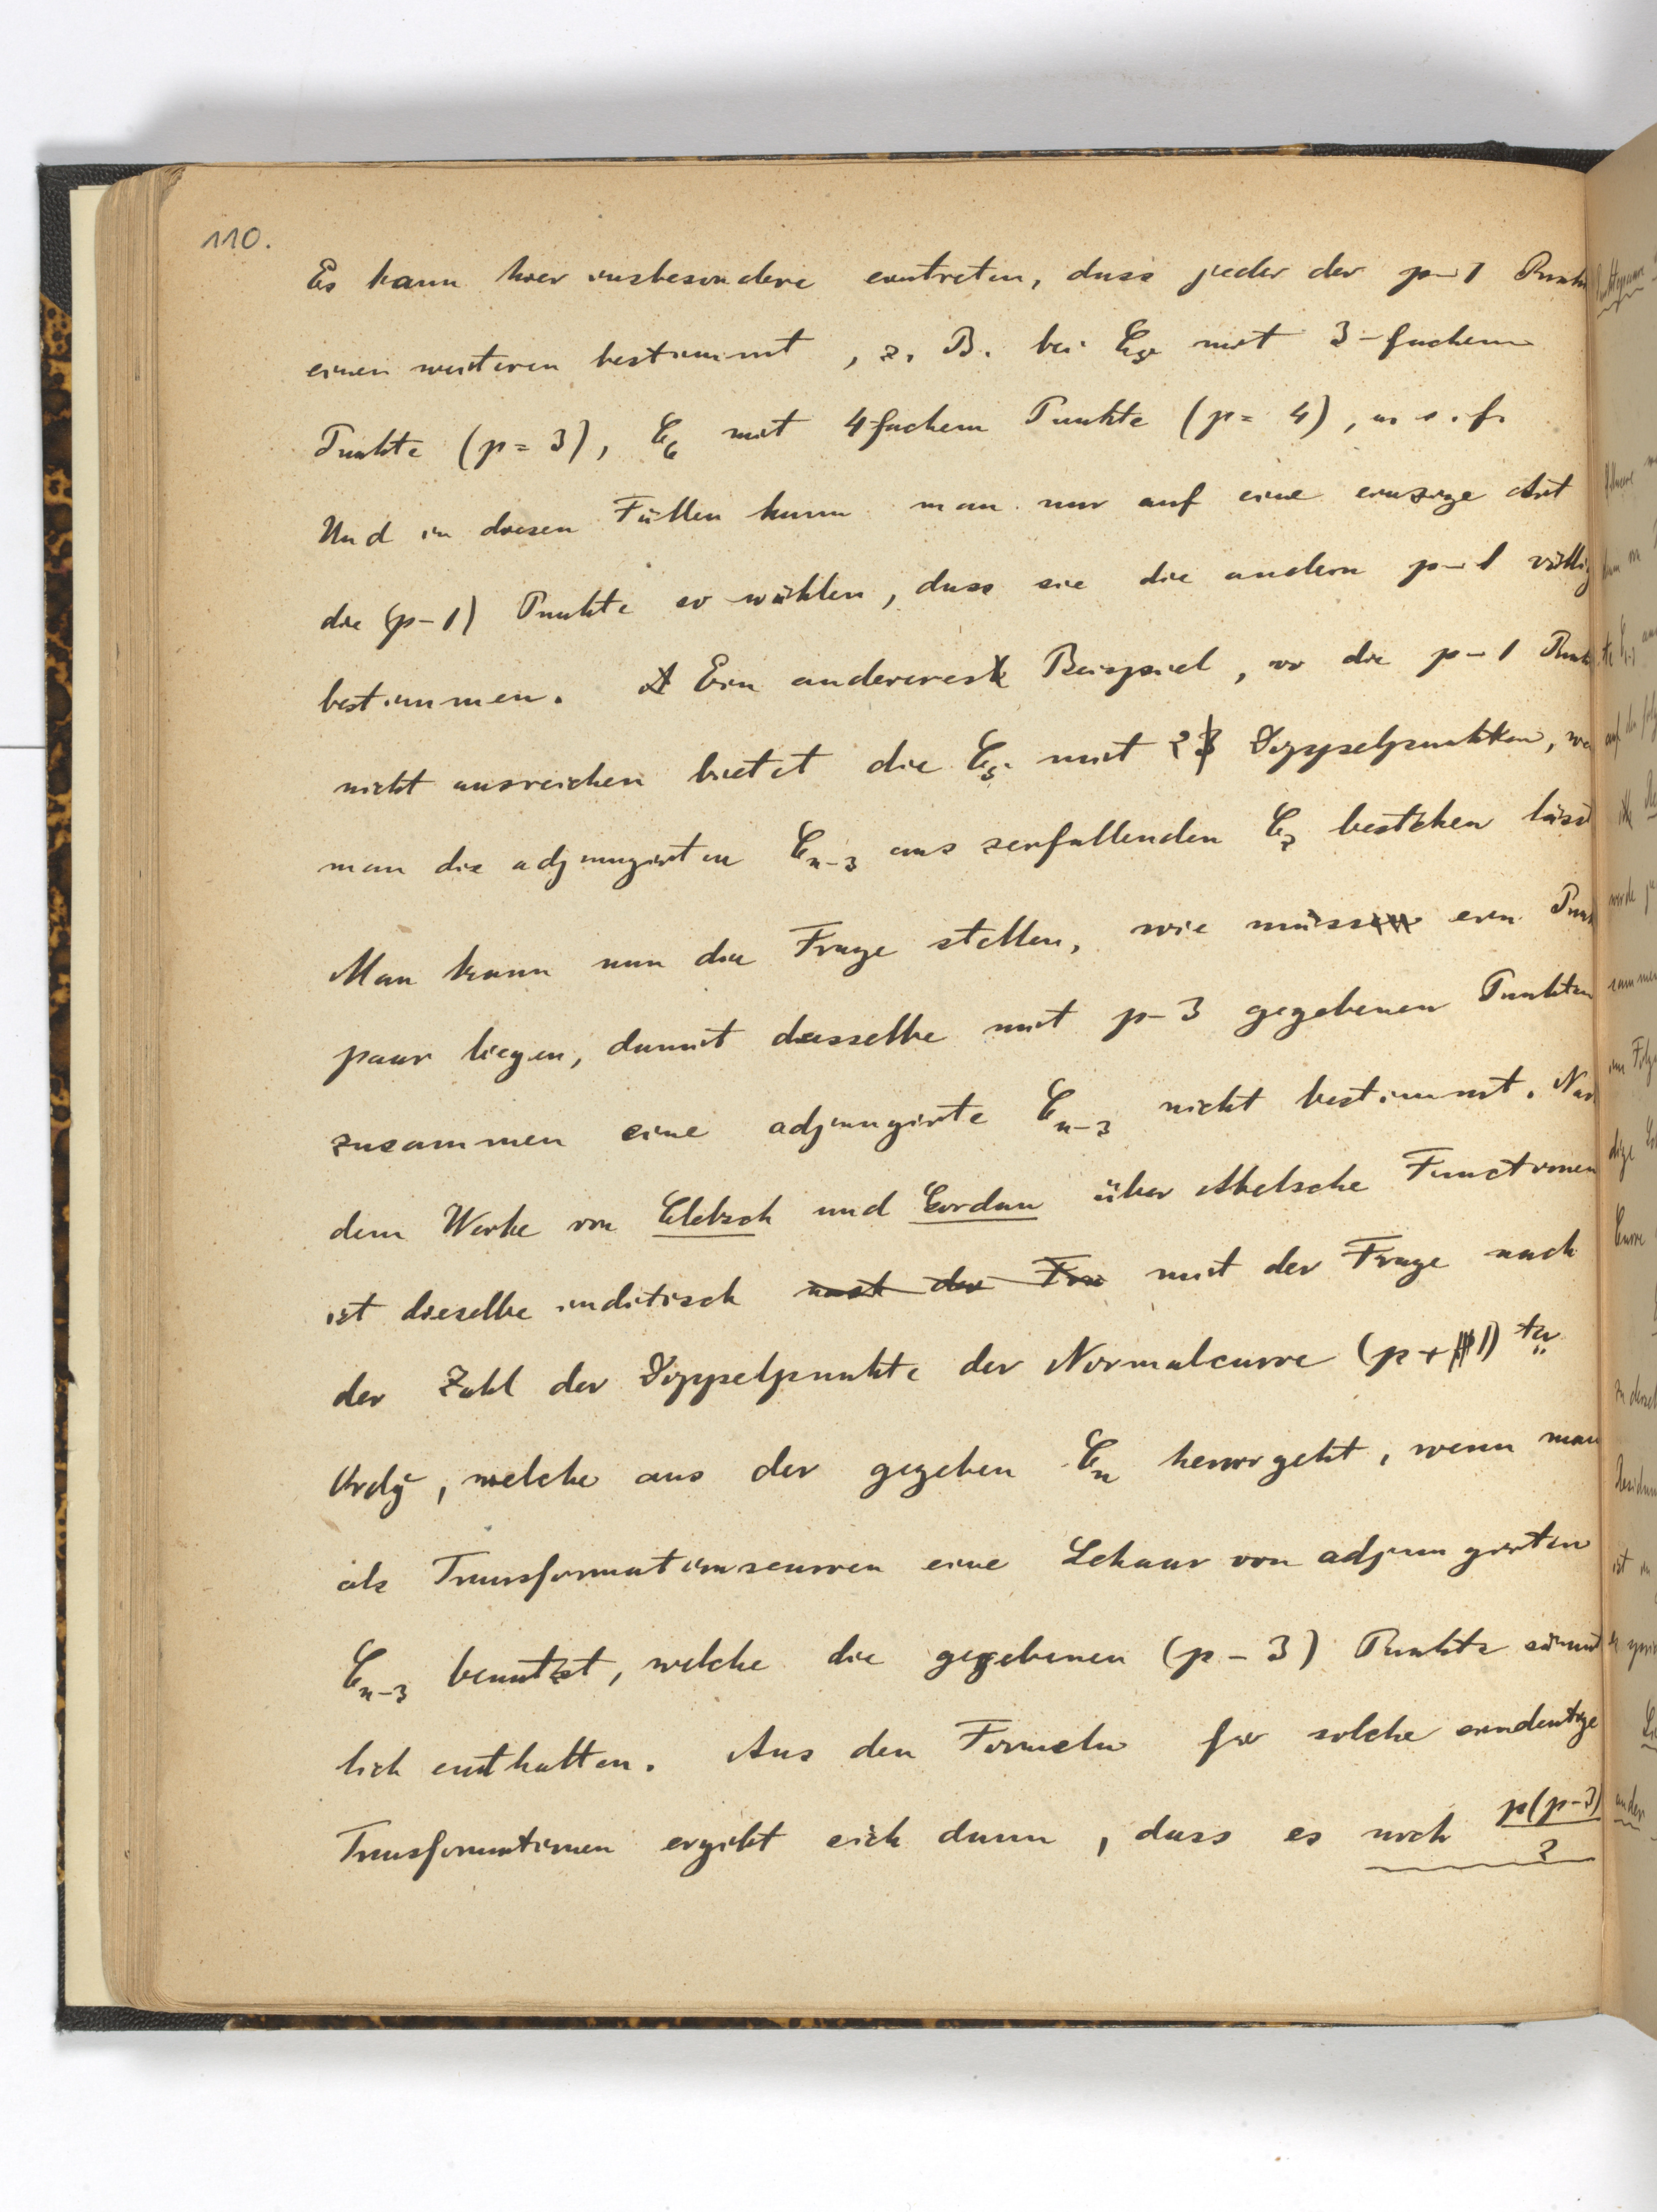 110.
Es kann hier insbesondere eintreten, dass jeder der p-1 Punkte
einen weiteren bestimmt, z. B. bei C₅ mit 3-fachem
Punkte (p = 3), C₆ mit 4fachem Punkte (p = 4), u. s. f.
Und in diesen Fällen kann man nur auf eine einzige Art
die (p-1) Punkte so wählen, dass sie die andern p-1 völlig
bestimmen. Ein anderes Beispiel, wo die p-1 Punkte
nicht ausreichen bietet die C₅ mit 2 Doppelpunkten, wo
man die adjungirten Cₙ₋₃ aus zerfallenden C₂ bestehen lässt
Man kann nun die Frage stellen, wie muss ein Punkt
paar liegen, damit dasselbe mit p-3 gegebenen Punkten
zusammen eine adjungirte Cₙ₋₃ nicht bestimmt. Nach
dem Werke von Clebsch und Gordan über Abelsche Functionen
ist dieselbe inditisch nach der Fra mit der Frage nach
der Zahl der Doppelpunkte der Normalcurve (p+1)ter
Ordg, welche aus der gegeben Cₙ hervorgeht, wenn man
als Transformationscurven eine Schaar von adjungirten
Cₙ₋₃ benutzt, welche die gegebenen (p-3) Punkte sämmt
lich enthalten. Aus den Formeln für solche eindeutige
Transformationen ergibt sich dann, dass es noch p(p-3)/2